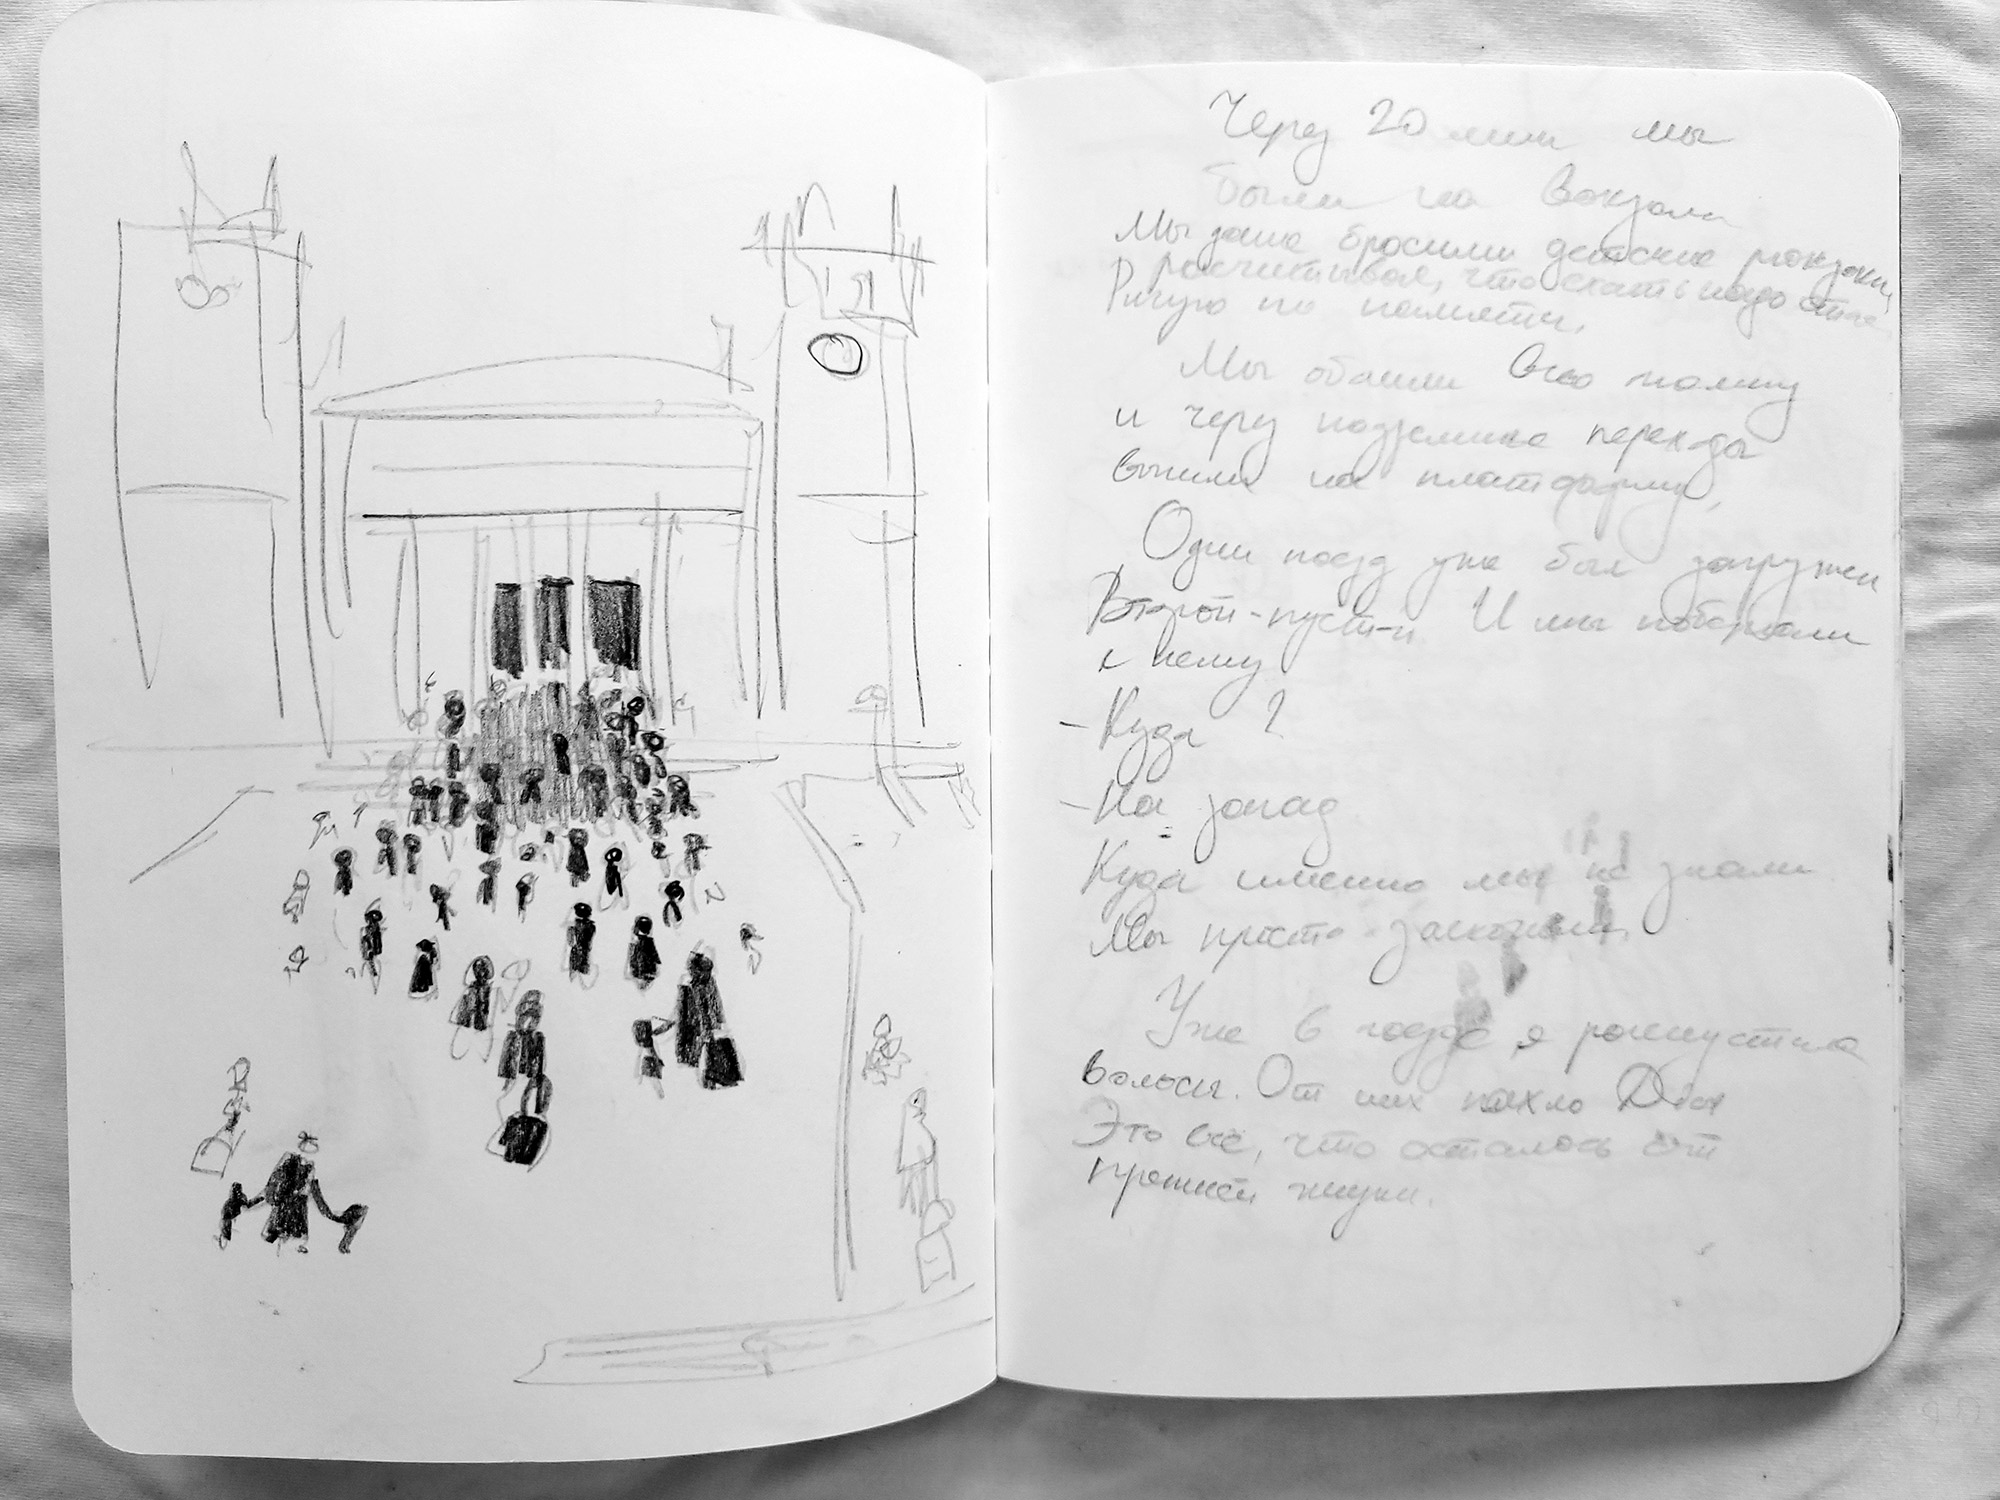 Через 20 мин мы
были на вокзале
Мы даже бросили детские рюкзаки,
расчитывая, что ехать надо стоя
Рисую по памяти.
Мы обошли всю толпу
и через подземные переходы
вышли на платформу.
Один поезд уже был загружен
Второй - пустой И мы побежали
к нему
- Куда?
- На запад
Куда именно мы не знали
Мы просто заскочили.
Уже в поезде я распустила
волосы. От них пахло Дом
Это всё, что осталось от
прошлой жизни.